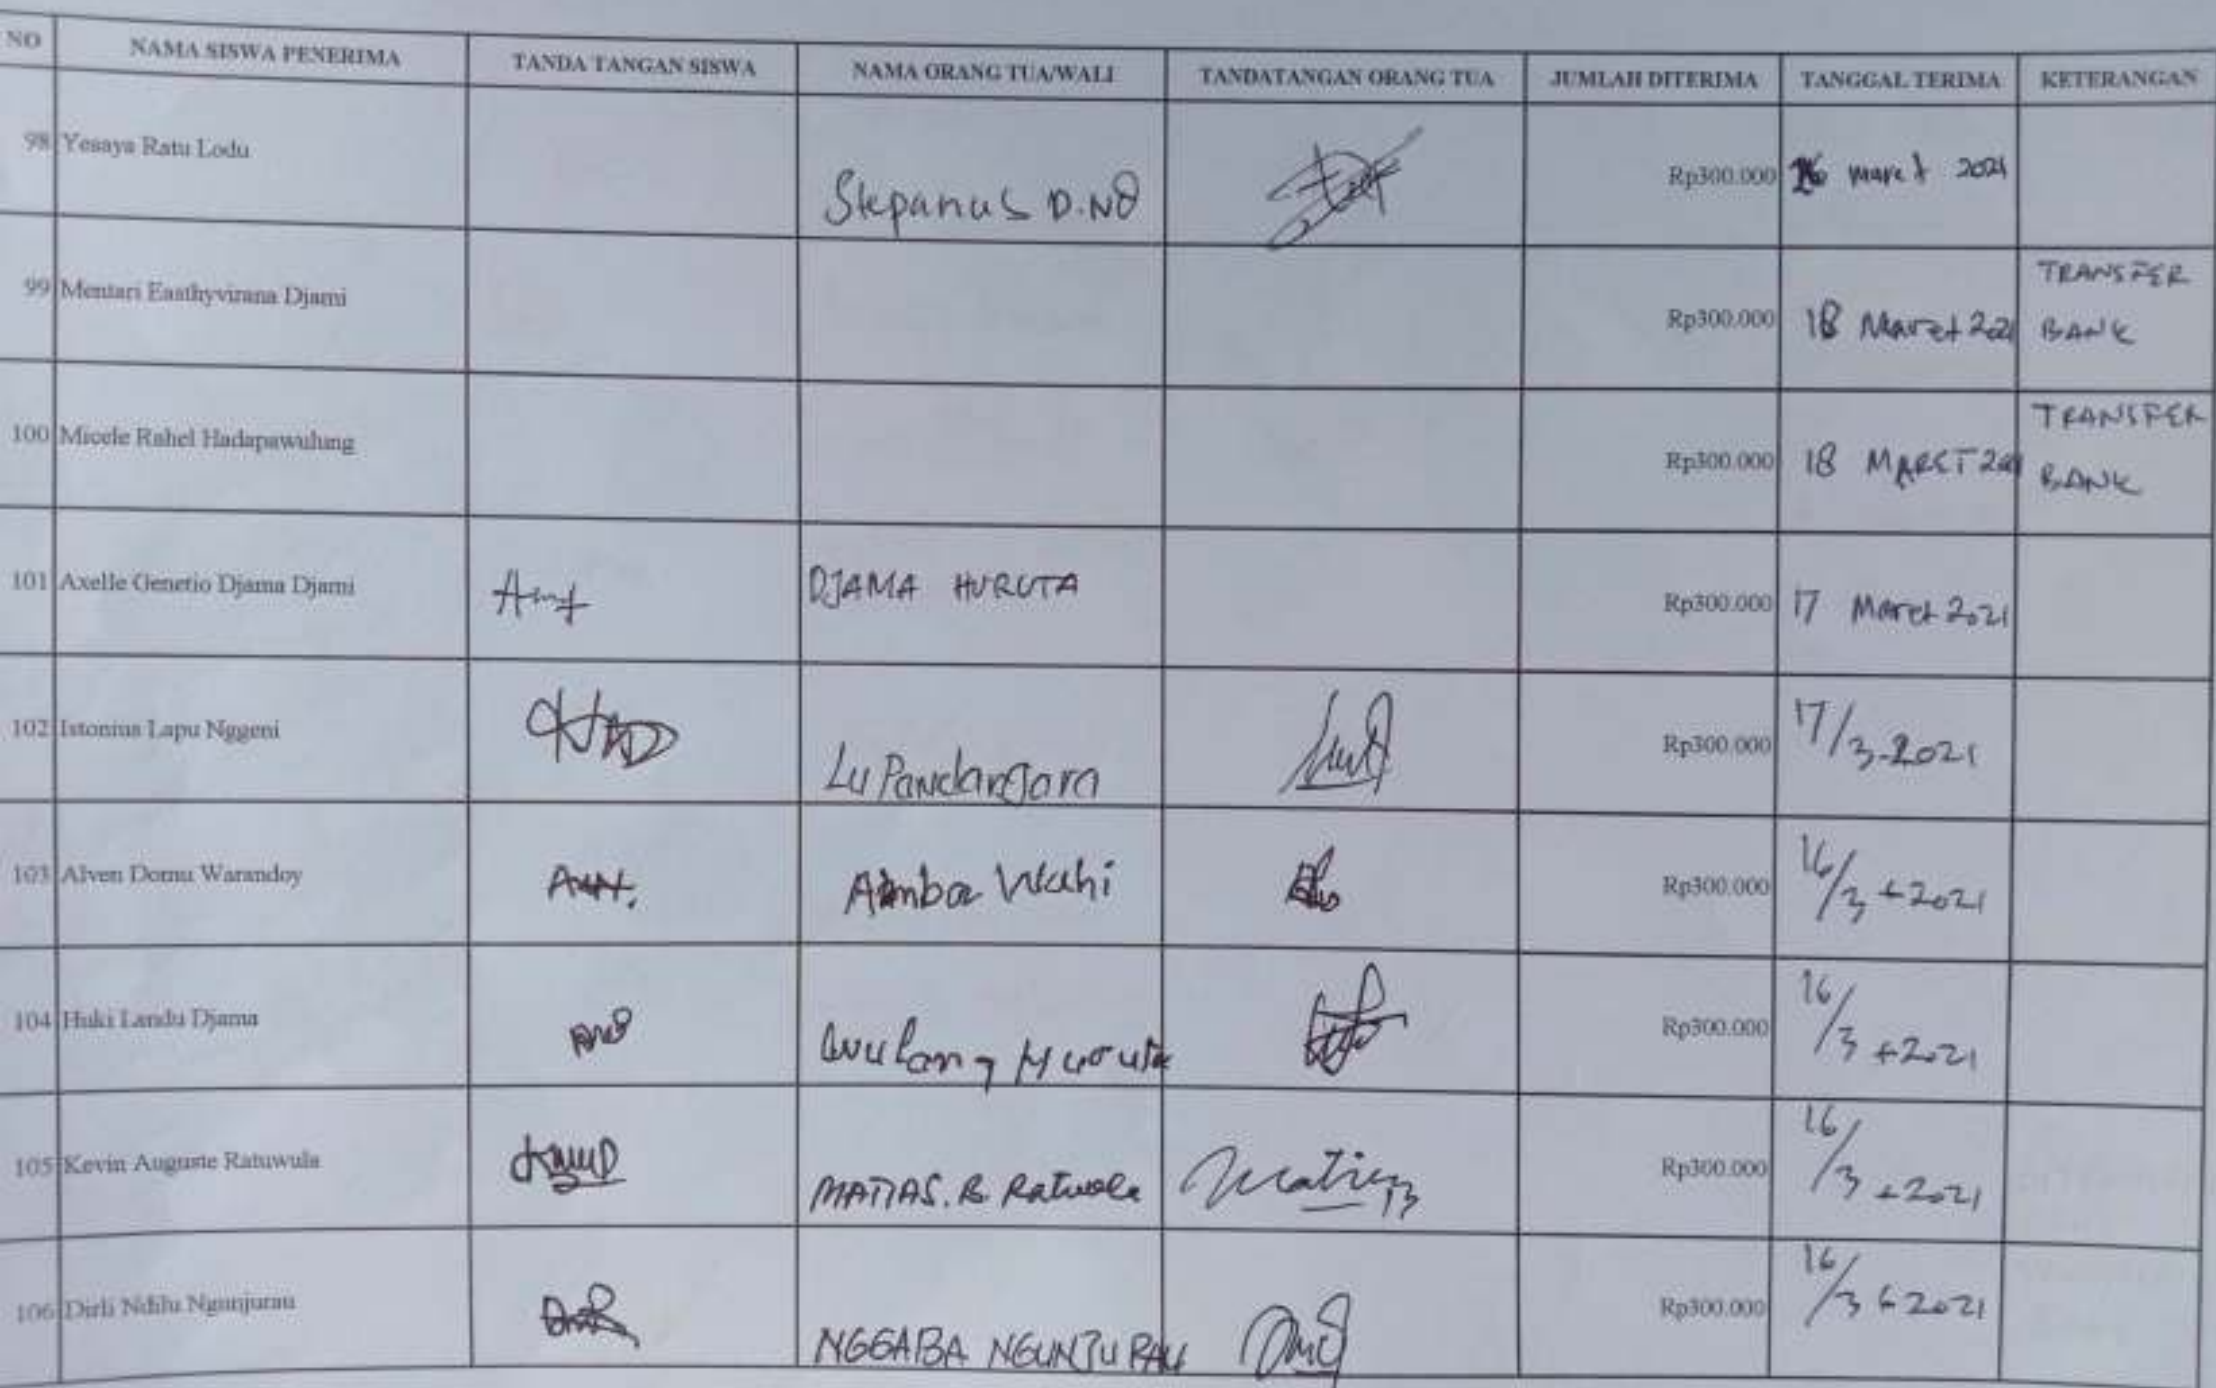 NO NAMA SISWA PENERIMA TANDA TANGAN SISWA NAMA ORANG TUA/WALI TANDATANGAN ORANG TUA JUMLAH DITERIMA TANGGAL TERIMA KETERANGAN
98 Yesaya Ratu Lodu Stepanus D.ND Rp300.000 16 maret 2021
99 Mentari Easthyvirana Djami Rp300.000 18 Maret 2021 TRANSFER
BANK
100 Micele Rahel Hadapawulung Rp300.000 18 MARET 2021 TRANSFER
BANK
101 Axelle Genetio Djama Djami DJAMA HURUTA Rp300.000 17 Maret 2021
102 Istonius Lapu Nggeni Lu Pandangara Rp300.000 17/3-2021
103 Alven Domu Warandoy Wahi Rp300.000 16/3-2021
104 Huki Landu Djama Wulang Huruta Rp300.000 16/3-2021
105 Kevin Auguste Ratuwula MATIAS. R Rp300.000 16/3-2021
106 Dirli Ndilu Ngunjurau NGGABA NGUNJURAU Rp300.000 16/3-2021